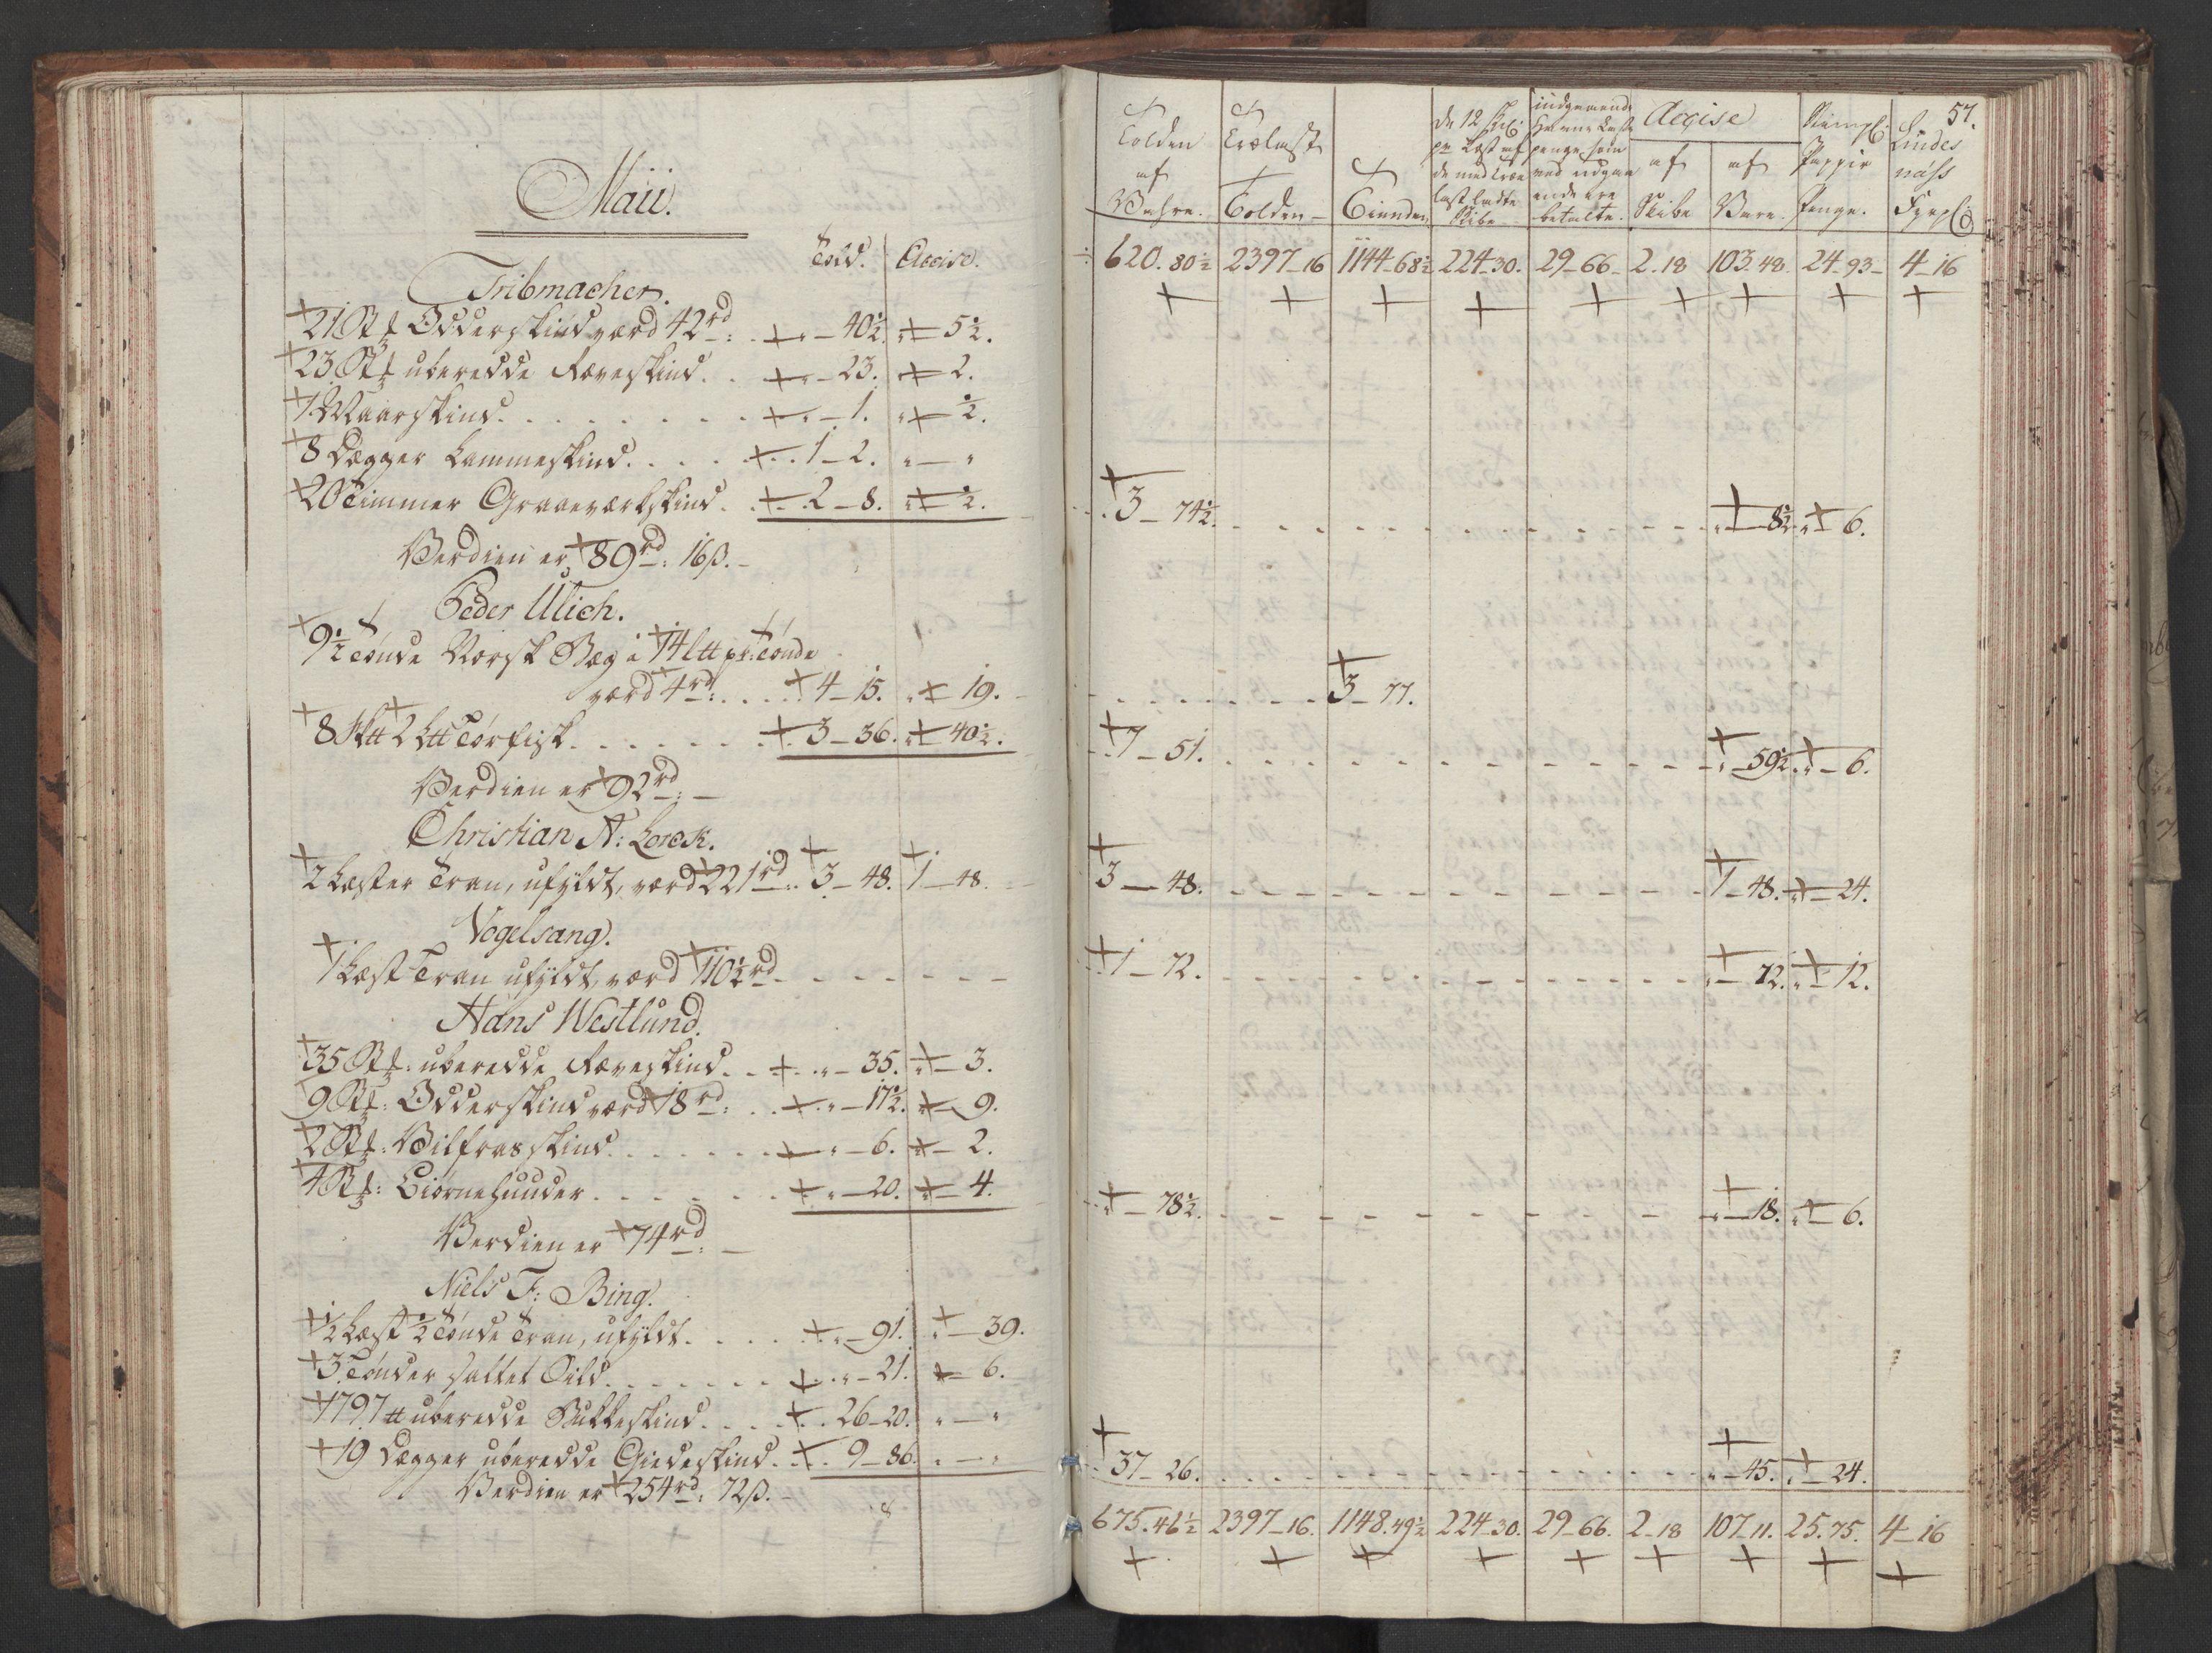 Maii.
Told. Accise.
Tribmacher.
21 Stk Odderskind værd 42 rd: " - 40½. " - 5½.
23 Stk uberedde Ræveskind. . " - 23. " - 2.
1 Maarskind. . . . " - 1. " - ½.
8 Dægger Lammeskind. . . . 1 - 2. " - "
20 Timmer Graaeværkskind. . 2 - 8. " - ½.
Verdien er 89 rd: 16 ß.
Peder Ulich.
9½ Tønde Norsk Bæg a 14 L℔ pr: Tønde
værd 4 rd: . . . . 4 - 15. " - 19.
8 Sk℔ 2 L℔ Tørfisk. . . . 3 - 36. " - 40½.
Verdien er 92 rd:
Christian A: Lorck.
2 Læster Tran, ufyldt, værd 221 rd: 3 - 48. 1 - 48.
Vogelsang.
1 Læst Tran ufyldt, værd 110½ rd
Hans Westlund.
35 Stk: uberedde Ræveskind. . " - 35. " - 3.
9 Stk: Odderskind værd 18 rd: . . " - 17½. " - 9.
2 Stk: Vilfrasskind. . . . " - 6. " - 2.
4 Stk: Biørnehuuder . . . . " - 20. " - 4.
Verdien er 74 rd:
Niels F: Bing.
½ Læst ½ Tønde Tran, ufyldt. . . . " - 91. " - 39.
3 Tønder saltet Sild. . . . " - 21. " - 6.
1797 ℔ uberedde Bukkeskind. . . . 26 - 20. " - "
19 Dægger uberedde Giedeskind. . 9 - 86. " - "
Verdien er 254 rd: 72 ß.
57.
Tolden af Vahre.
Trælast Tolden
Tienden
de 12 Skl: pr Læst af de med Træelast ladte Skibe
indgaaende Læste penge som ved udgaaende ere betalte.
Accise
af Skibe
af Vare.
Stempl: Pappir Penge.
Lindes näss Fyrpl:
620. 80½ 2397 - 16 1144 - 68½ 224 - 30. 29 - 66 - 2 - 18 103. 48. 24 - 93 - 4 - 16
3 - 74½. " - 8½. " - 6.
3 - 77.
7 - 51. " - 59½. " - 6.
3 - 48. 1 - 48. " - 24.
1 - 72. " - 72. " - 12.
" - 78½. " - 18. " - 6.
37 - 26. " - 45. " - 24.
675. 46½ 2397 - 16. 1148. 49½ 224 - 30. 29 - 66. 2 - 18 107 11. 25. 75. 4 - 16